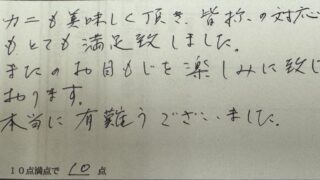 カニも美味しく頂き、皆称、の対応
もとても満足致しました。
またのお目もじを楽しみに致し
おります。
本当に有難うございました。
10点満点で 10 点